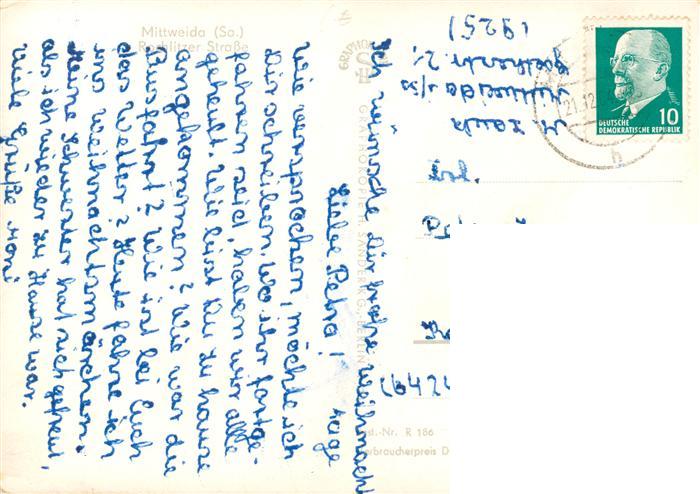 Mittweida (Sa.)
Rochlitzer Straße
Liebe Petra!
Wie versprochen, möchte ich
Dir schreiben. Wo ihr fortge-
fahren seid, haben wir alle
geheult. Wie bist Du zu hause
angekommen? Wie war die
Busfahrt? Wie ist bei Euch
das Wetter? Heute fahre ich
ins Weihnachtsmärchen.
Meine Schwester hat sich gefreut,
als ich wieder zu Hause war.
Viele Grüße Moni
Ich wünsche Dir frohe Weihnacht
tage
GRAPHOKOPIE H. SANDER KG., BERLIN
Mittweida
925
21.12.
DEUTSCHE
DEMOKRATISCHE REPUBLIK
10
b
(6424
Best.-Nr. R 186
Verbraucherpreis D